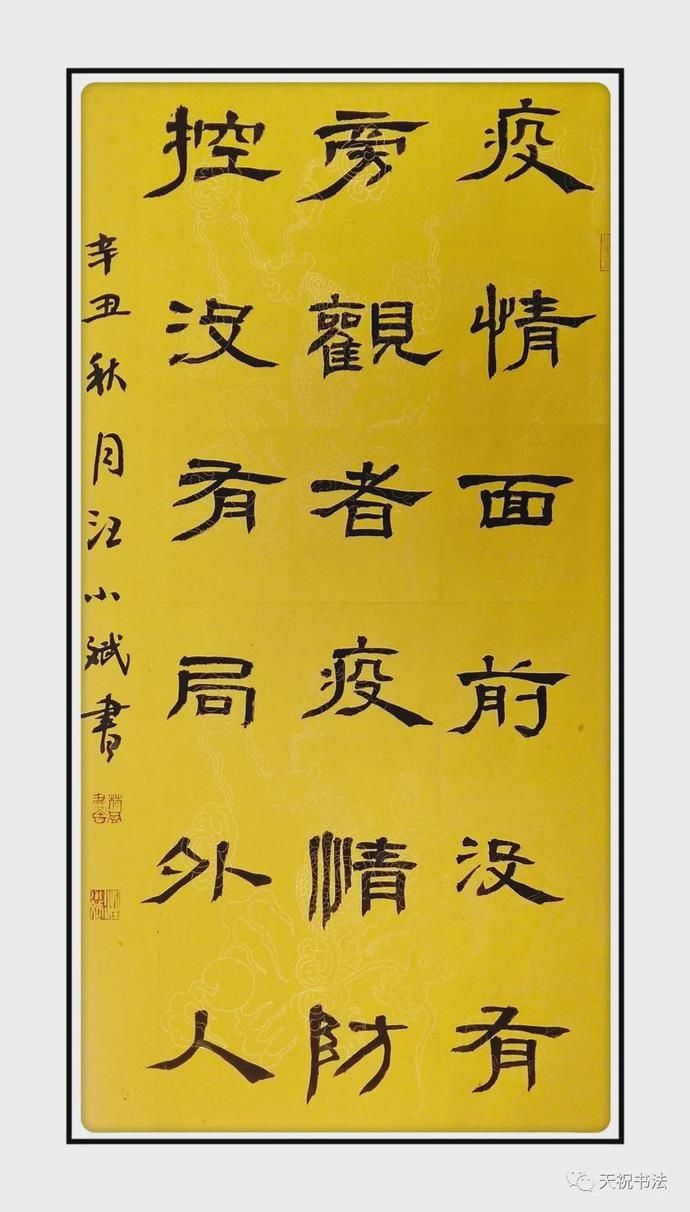 疫情面前没有
旁觀者疫情防
控没有局外人
辛丑秋月汪小斌書
天祝书法